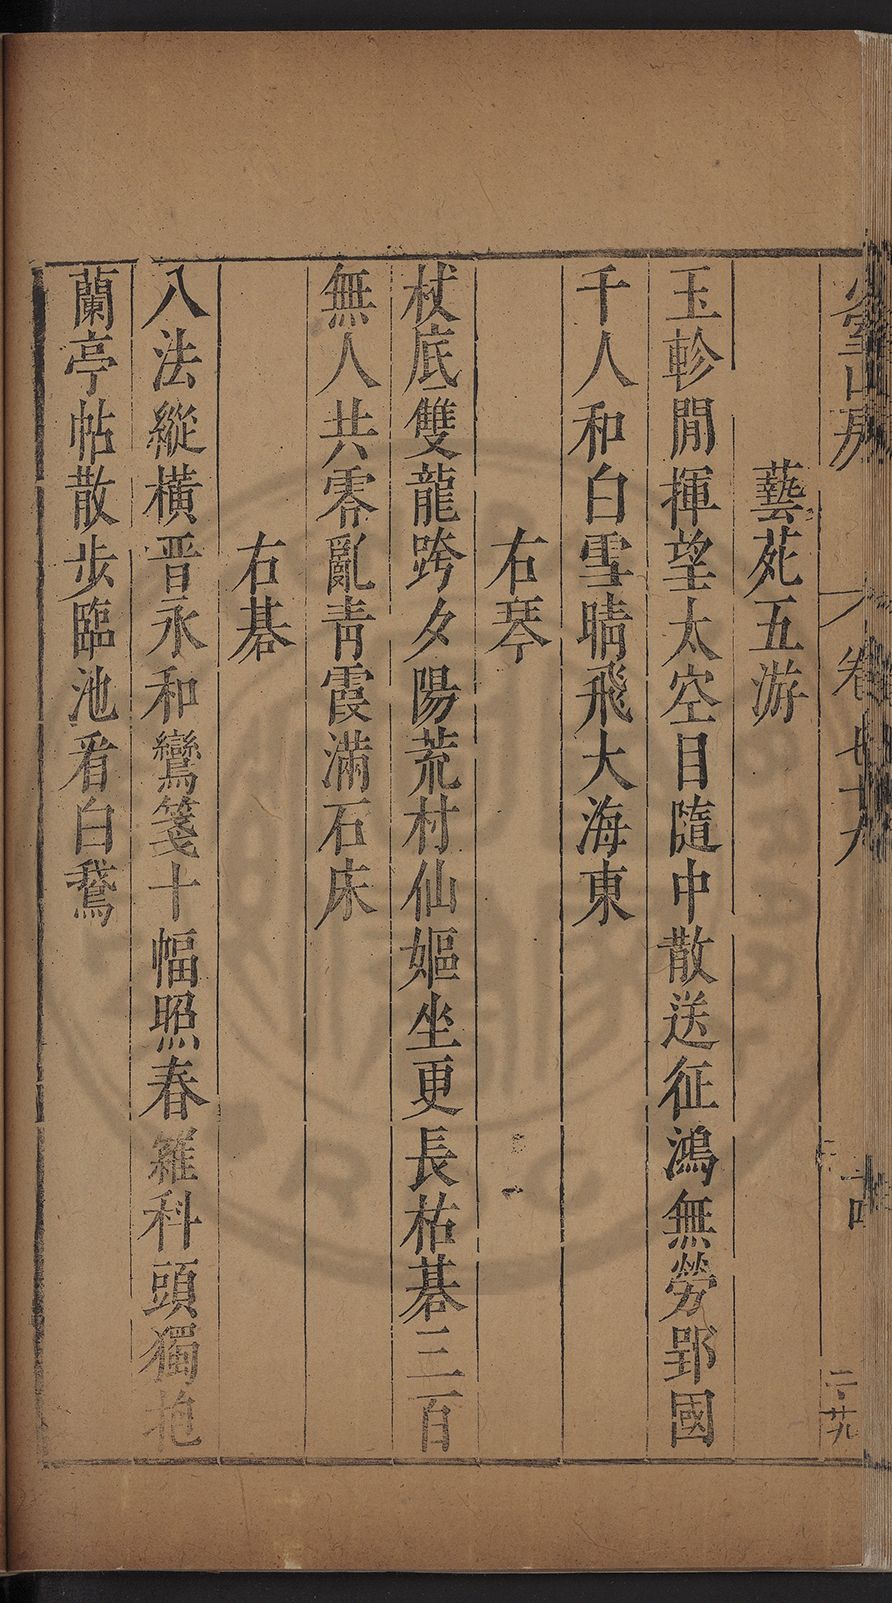 少室山房
卷七十六
十四
二百廿九
藝苑五游
玉軫閒揮望太空目隨中散送征鴻無勞郢國
千人和白雪晴飛大海東
右琴
杖底雙龍跨夕陽荒村仙嫗坐更長枯碁三百
無人共零亂青霞滿石床
右碁
八法縱橫晋永和鸞箋十幅照春羅科頭獨抱
蘭亭帖散步臨池看白鵞